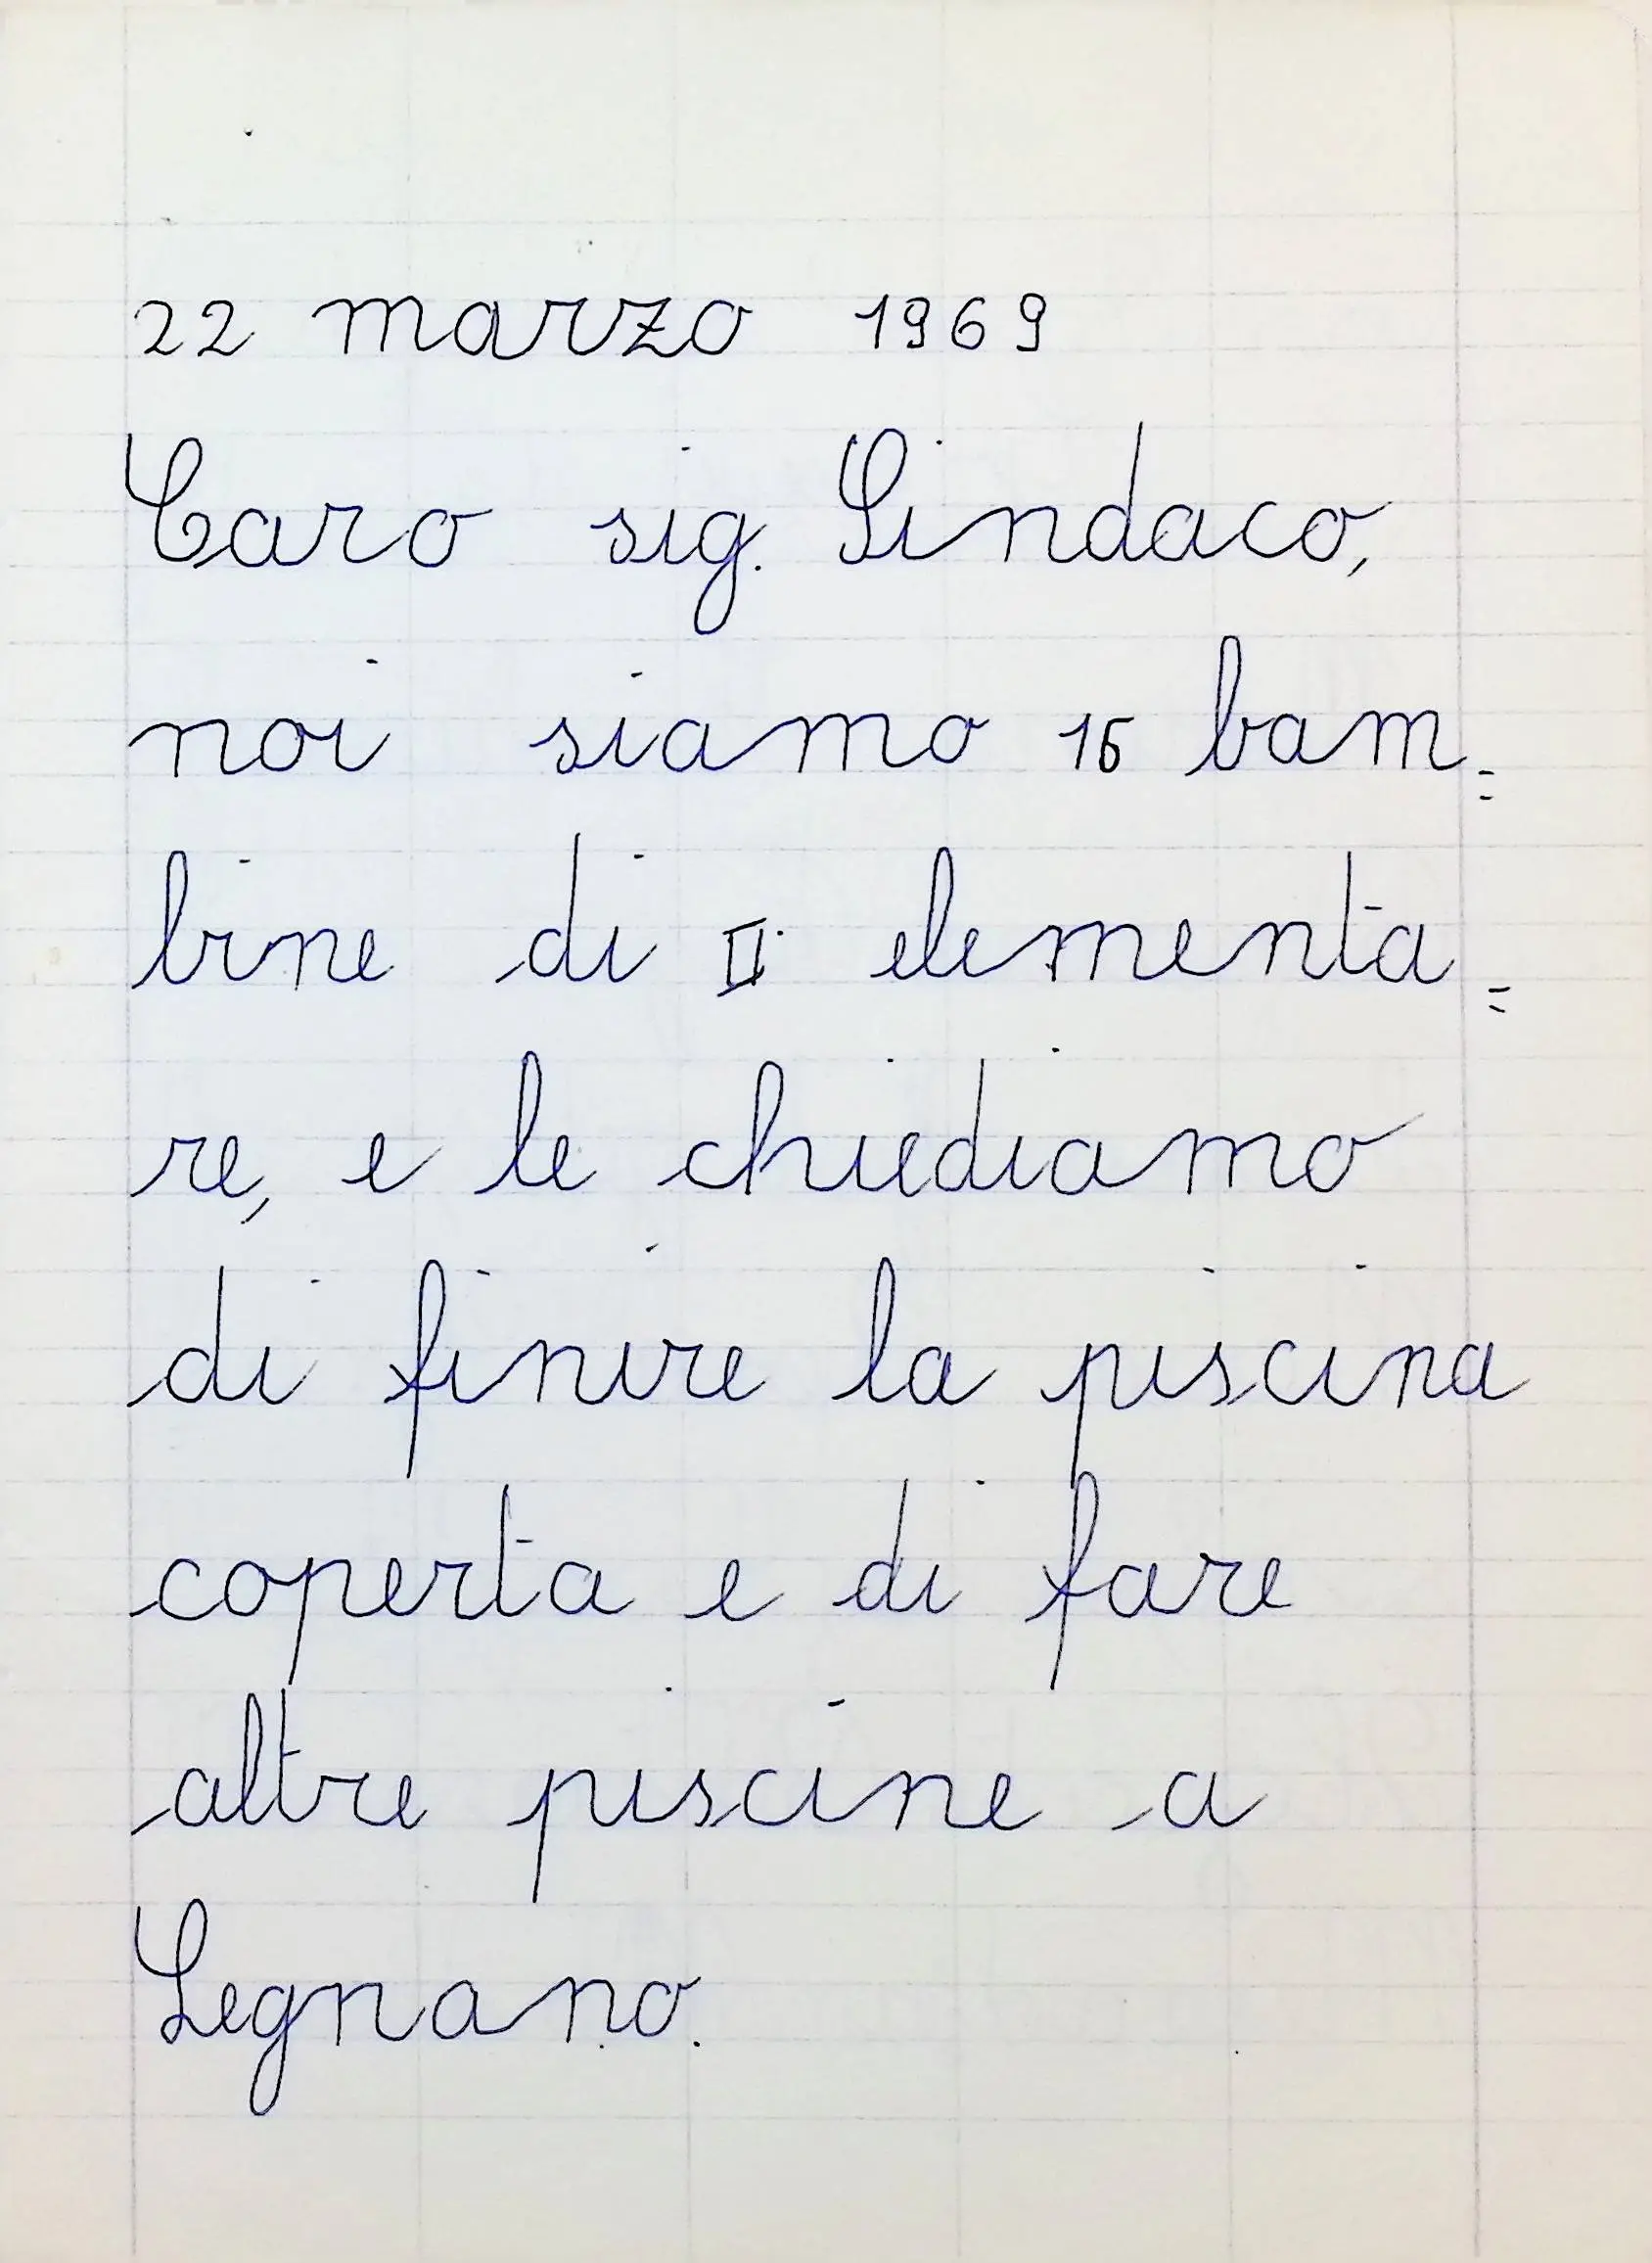 22 marzo 1969
Caro sig. Sindaco,
noi siamo 16 bam=
bine di II elementa=
re, e le chiediamo
di finire la piscina
coperta e di fare
altre piscine a
Legnano.